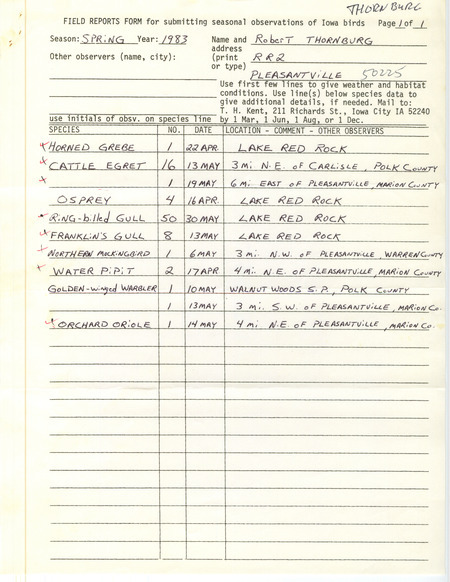 THORNBURG
FIELD REPORTS FORM for submitting seasonal observations of Iowa birds Page 1 of 1
Season: SPRING Year: 1983 Name and Robert THORNBURG
address
Other observers (name, city): (print RR2
or type)
PLEASANTVILLE 50225
Use first few lines to give weather and habitat
conditions. Use line(s) below species data to
give additional details, if needed. Mail to:
T. H. Kent, 211 Richards St., Iowa City IA 52240
use initials of obsv. on species line by 1 Mar, 1 Jun, 1 Aug, or 1 Dec.
SPECIES NO. DATE LOCATION - COMMENT - OTHER OBSERVERS
x HORNED GREBE 1 22 APR. LAKE RED ROCK
x CATTLE EGRET 16 13 MAY 3 mi. N.E. of CARLISLE, POLK COUNTY
x 1 19 MAY 6 mi. EAST of PLEASANTVILLE, MARION COUNTY
OSPREY 4 16 APR. LAKE RED ROCK
x RING-billed GULL 50 30 MAY LAKE RED ROCK
x FRANKLIN'S GULL 8 13 MAY LAKE RED ROCK
x NORTHERN MOCKINGBIRD 1 6 MAY 3 mi. N.W. of PLEASANTVILLE, WARREN COUNTY
x WATER PIPIT 2 17 APR 4 mi. N.E. of PLEASANTVILLE, MARION COUNTY
GOLDEN-winged WARBLER 1 10 MAY WALNUT WOODS S.P., POLK COUNTY
1 13 MAY 3 mi. S.W. of PLEASANTVILLE, MARION Co.
x ORCHARD ORIOLE 1 14 MAY 4 mi. N.E. of PLEASANTVILLE, MARION Co.